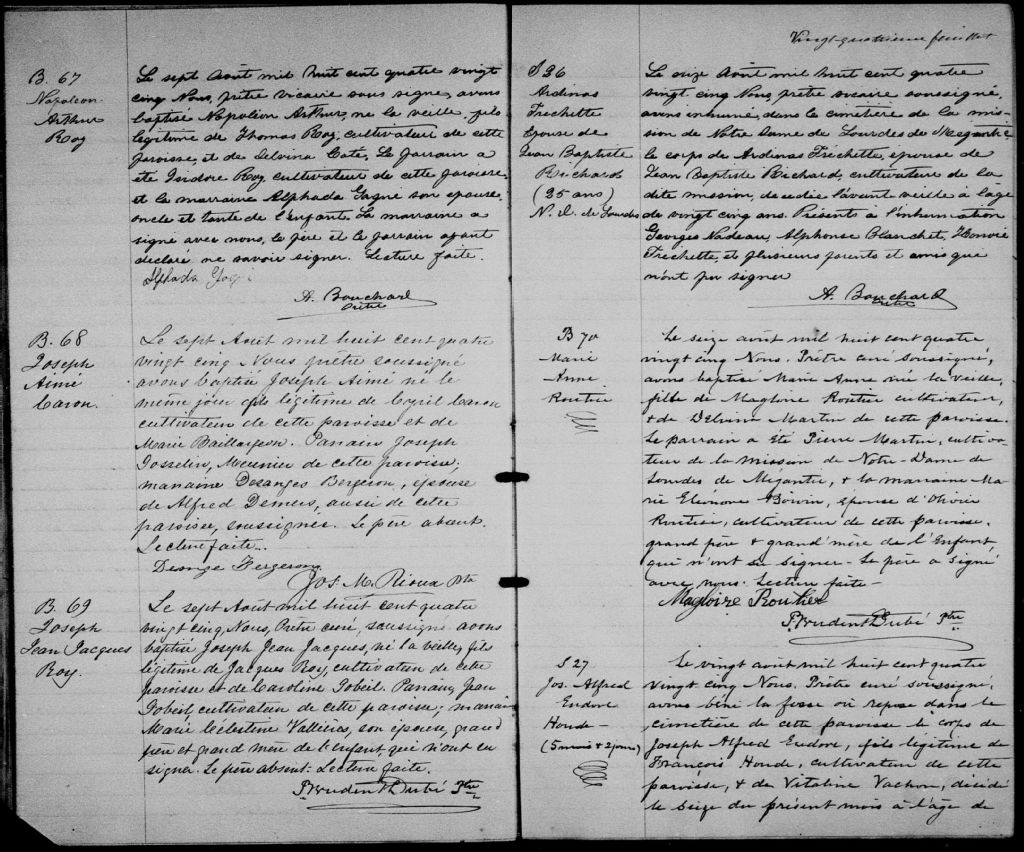 B. 67
Napoléon
Arthur
Roy
Le sept Août mil huit cent quatre vingt
cinq Nous, prêtre vicaire sous signé, avons
baptisé Napoléon Arthur, né la veille, fils
légitime de Thomas Roy, cultivateur de cette
paroisse, et de Delvina Coté. Le parrain a
été Isidore Roy, cultivateur de cette paroisse,
et la marraine Alphada Gagné son epouse
oncle et tante de l'enfant. La marraine a
signé avec nous, le père et le parrain ayant
declaré ne savoir signer. Lecture faite.
Alphada
A. Bouchard
Ptre
B. 68
Joseph
Aimé
Caron.
Le sept Août mil huit cent quatre
vingt cinq Nous prêtre soussigné
avons baptisé Joseph Aimé né le
même jour fils légitime de Cyril Caron
cultivateur de cette paroisse et de
Marie Baillargeon. Parrain Joseph
Gosselin, Meunier de cette paroisse;
marraine Desanges Bergeron, epouse
de Alfred Demers, aussi de cette
paroisse, soussignés. Le père absent.
Lecture faite.
Desange Bergeron
Jos. M. Rioux Ptre
B. 69
Joseph
Jean Jacques
Roy.
Le sept Août mil huit cent quatre
vingt cinq, Nous, Prêtre curé, soussigné avons
baptisé Joseph Jean Jacques, né la veille, fils
légitime de Jacques Roy, cultivateur de cette
paroisse et de Caroline Gobeil. Parrain, Jean
Gobeil cultivateur de cette paroisse; marraine
Marie Célestine Vallières, son épouse, grand
père et grand mère de l'enfant, qui n'ont su
signer. Le père absent. Lecture faite.
Prudent Dubé Ptre
Vingt-quatrième feuillet
S 26
Ardinas
Frechette
Epouse de
Jean Baptiste
Richard
(25 ans)
N. D. de Lourdes
Le seize Août mil huit cent quatre
vingt cinq Nous, prêtre vicaire soussigné,
avons inhumé, dans le cimetière de la mis
sion de Notre Dame de Lourdes de Megantic
le corps de Ardinas Fréchette, epouse de
Jean Baptiste Richard, cultivateur de la
dite mission, decedée l'avant veille à l'age
de vingt cinq ans. Présent à l'inhumation
Georges Nadeau, Alphonse Blanchet,
Frechette, et plusieurs parents et amis que
n'ont pu signer
A. Bouchard
Ptre
B 70
Marie
Anne
Routier
Le seize août mil huit cent quatre
vingt cinq Nous, Prêtre curé soussigné,
avons baptisé Marie Anne née la veille,
fille de Magloire Routier cultivateur,
& de Delvina Martin de cette paroisse.
Le parrain a été Pierre Martin, cultiva
teur de la mission de Notre-Dame de
Lourdes de Mégantic, & la marraine Ma
rie Eléonore Boivin, épouse d'Olivier
Routier, cultivateur de cette paroisse.
grand père & grand'mère de l'Enfant,
qui n'ont su signer - Le père a signé
avec nous. Lecture faite -
Magloire Routier
Prudent Dubé Ptre
S 27
Jos. Alfred
Eudore
Houde -
(5 mois & 2 jours)
Le vingt août mil huit cent quatre
vingt cinq Nous, Prêtre curé soussigné,
avons béni la fosse où repose dans le
cimetière de cette paroisse le corps de
Joseph Alfred Eudore, fils légitime de
François Houde, cultivateur de cette
paroisse, & de Vitaline Vachon, décédé
le seize du présent mois à l'âge de